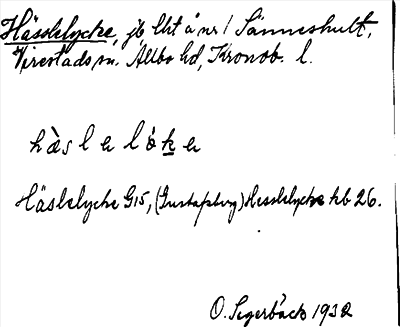 Hässlelycke, jb lht å nr 1 Sänneshult,
Virestads sn. Allbo hd, Kronob. l.
hàslelỏke
Häslelycke G15, (Gustafsberg) Hesslelycke hb 26.
O. Segerbäck 1932